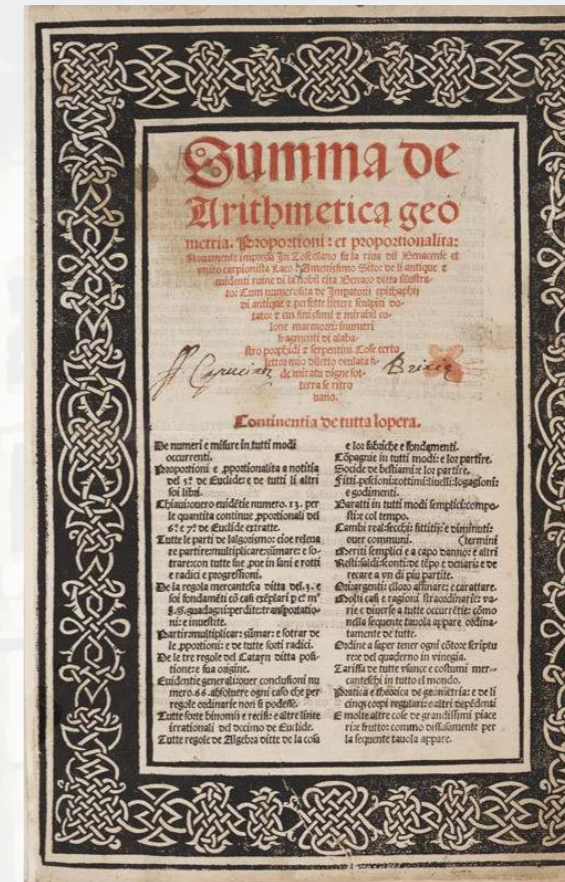 Summa de
Arithmetica geo
metria. Proportioni: et proportionalita:
Nouamente impressa In Toscolano su la riua dil Benacense et
vnico carpionista Laco: Amenissimo Sito: de li antique &
euidenti ruine di la nobil cita Benaco ditta illustra-
to: Cum numerosita de Imperatorii epithaphii
di antique & perfette littere sculpiti do-
tato: & cum finissimi & mirabil co-
lone marmorei: inumeri
fragmenti di alaba-
stro porphidi & serpentini. Cose certo
lettor mio diletto oculata fi-
de miratu digne sot-
terra se ritro
uano.
Continentia de tutta lopera.
De numeri e misure in tutti modi
occurrenti.
Proportioni e ꝓportionalita a notitia
del 5º de Euclide: e de tutti li altri
soi libri.
Chiaui: ouero euidẽtie numero. 13. per
le quantita continue ꝓportionali del
6º e 7º de Euclide extratte.
Tutte le parti de lalgorismo: cioe releua
re partire: multiplicare: sũmare: e so-
trare: con tutte sue ꝓue in sani e rotti
e radici e progressioni.
De la regola mercantesca ditta del. 3. e
soi fondamẽti cõ casi exẽplari ꝑ cº mº
guadagni: perdite: transportatio-
ni: e inuestite.
Partir: multiplicar: sũmar: e sotrar de
le ꝓportioni: e de tutte sorti radici.
De le tre regole del Catayn ditta posi-
tione: e sua origine.
Euidentie generali: ouer conclusioni nu
mero. 66. absoluere ogni caso che per
regole ordinarie non si podesse.
Tutte sorte binomii e recisi: e altre linee
irrationali del decimo de Euclide.
Tutte regole de Algebra ditte de la cosa
e lor fabriche e fondamenti.
Cõpagnie in tutti modi: e lor partire.
Socide de bestiami: e lor partire.
Fitti: pescioni: cottimi: liuelli: logagioni:
e godimenti.
Baratti in tutti modi semplici: compo-
sti: e col tempo.
Cambi real: secchi: fittitii: e diminuti:
ouer communi.
Meriti semplici e a capo danno: e altri (termini
Resti: saldi: sconti: de tẽpo e denari: e de
recare a vn di piu partite.
Ori: argenti: e lloro affinare: e carattare.
Molti casi e ragioni straordinarie: va-
rie e diuerse a tutte occurrẽtie: cõmo
nella sequente tauola appare ordina-
tamente de tutte.
Ordine a saper tener ogni cõto: e scriptu
re: e del quaderno in vinegia.
Tariffa de tutte vsance e costumi mer-
canteschi in tutto el mondo.
Pratica e theorica de geometria: e de li
cinqꝫ corpi regulari: e altri depẽdenti
E molte altre cose de grandissimi piace
ri: e frutto: commo diffusamente per
la sequente tauola appare.